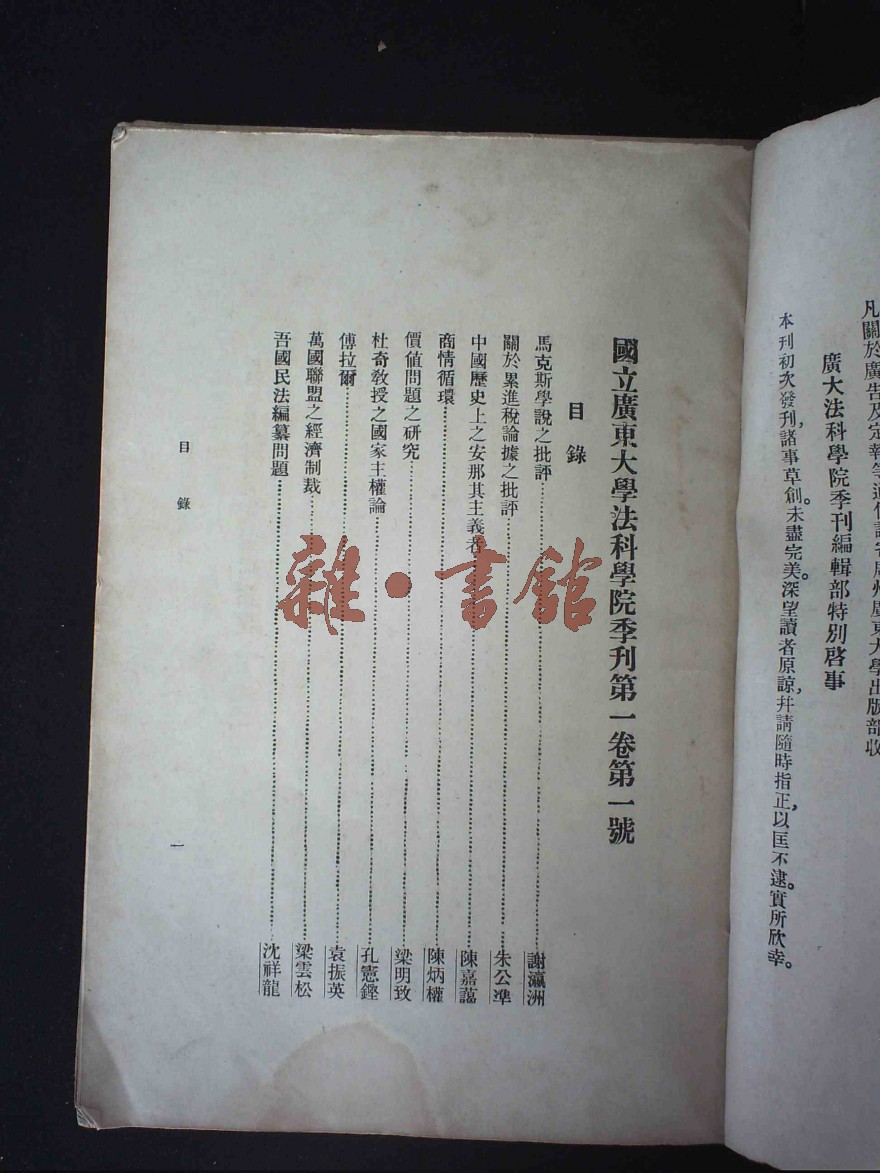 凡關於廣告及定報等
廣州廣東大學出版部收
廣大法科學院季刊編輯部特別啓事
本刊初次發刊,諸事草創。未盡完美。深望讀者原諒,幷請隨時指正,以匡不逮。實所欣幸。
國立廣東大學法科學院季刊第一卷第一號
目錄
馬克斯學說之批評……謝瀛洲
關於累進稅論據之批評……朱公準
中國歷史上之安那其主義者……陳嘉藹
商情循環……陳炳權
價値問題之硏究……梁明致
杜奇敎授之國家主權論……孔憲鏗
傅拉爾……袁振英
萬國聯盟之經濟制裁……梁雲松
吾國民法編纂問題……沈祥龍
目錄
一
雜·書館